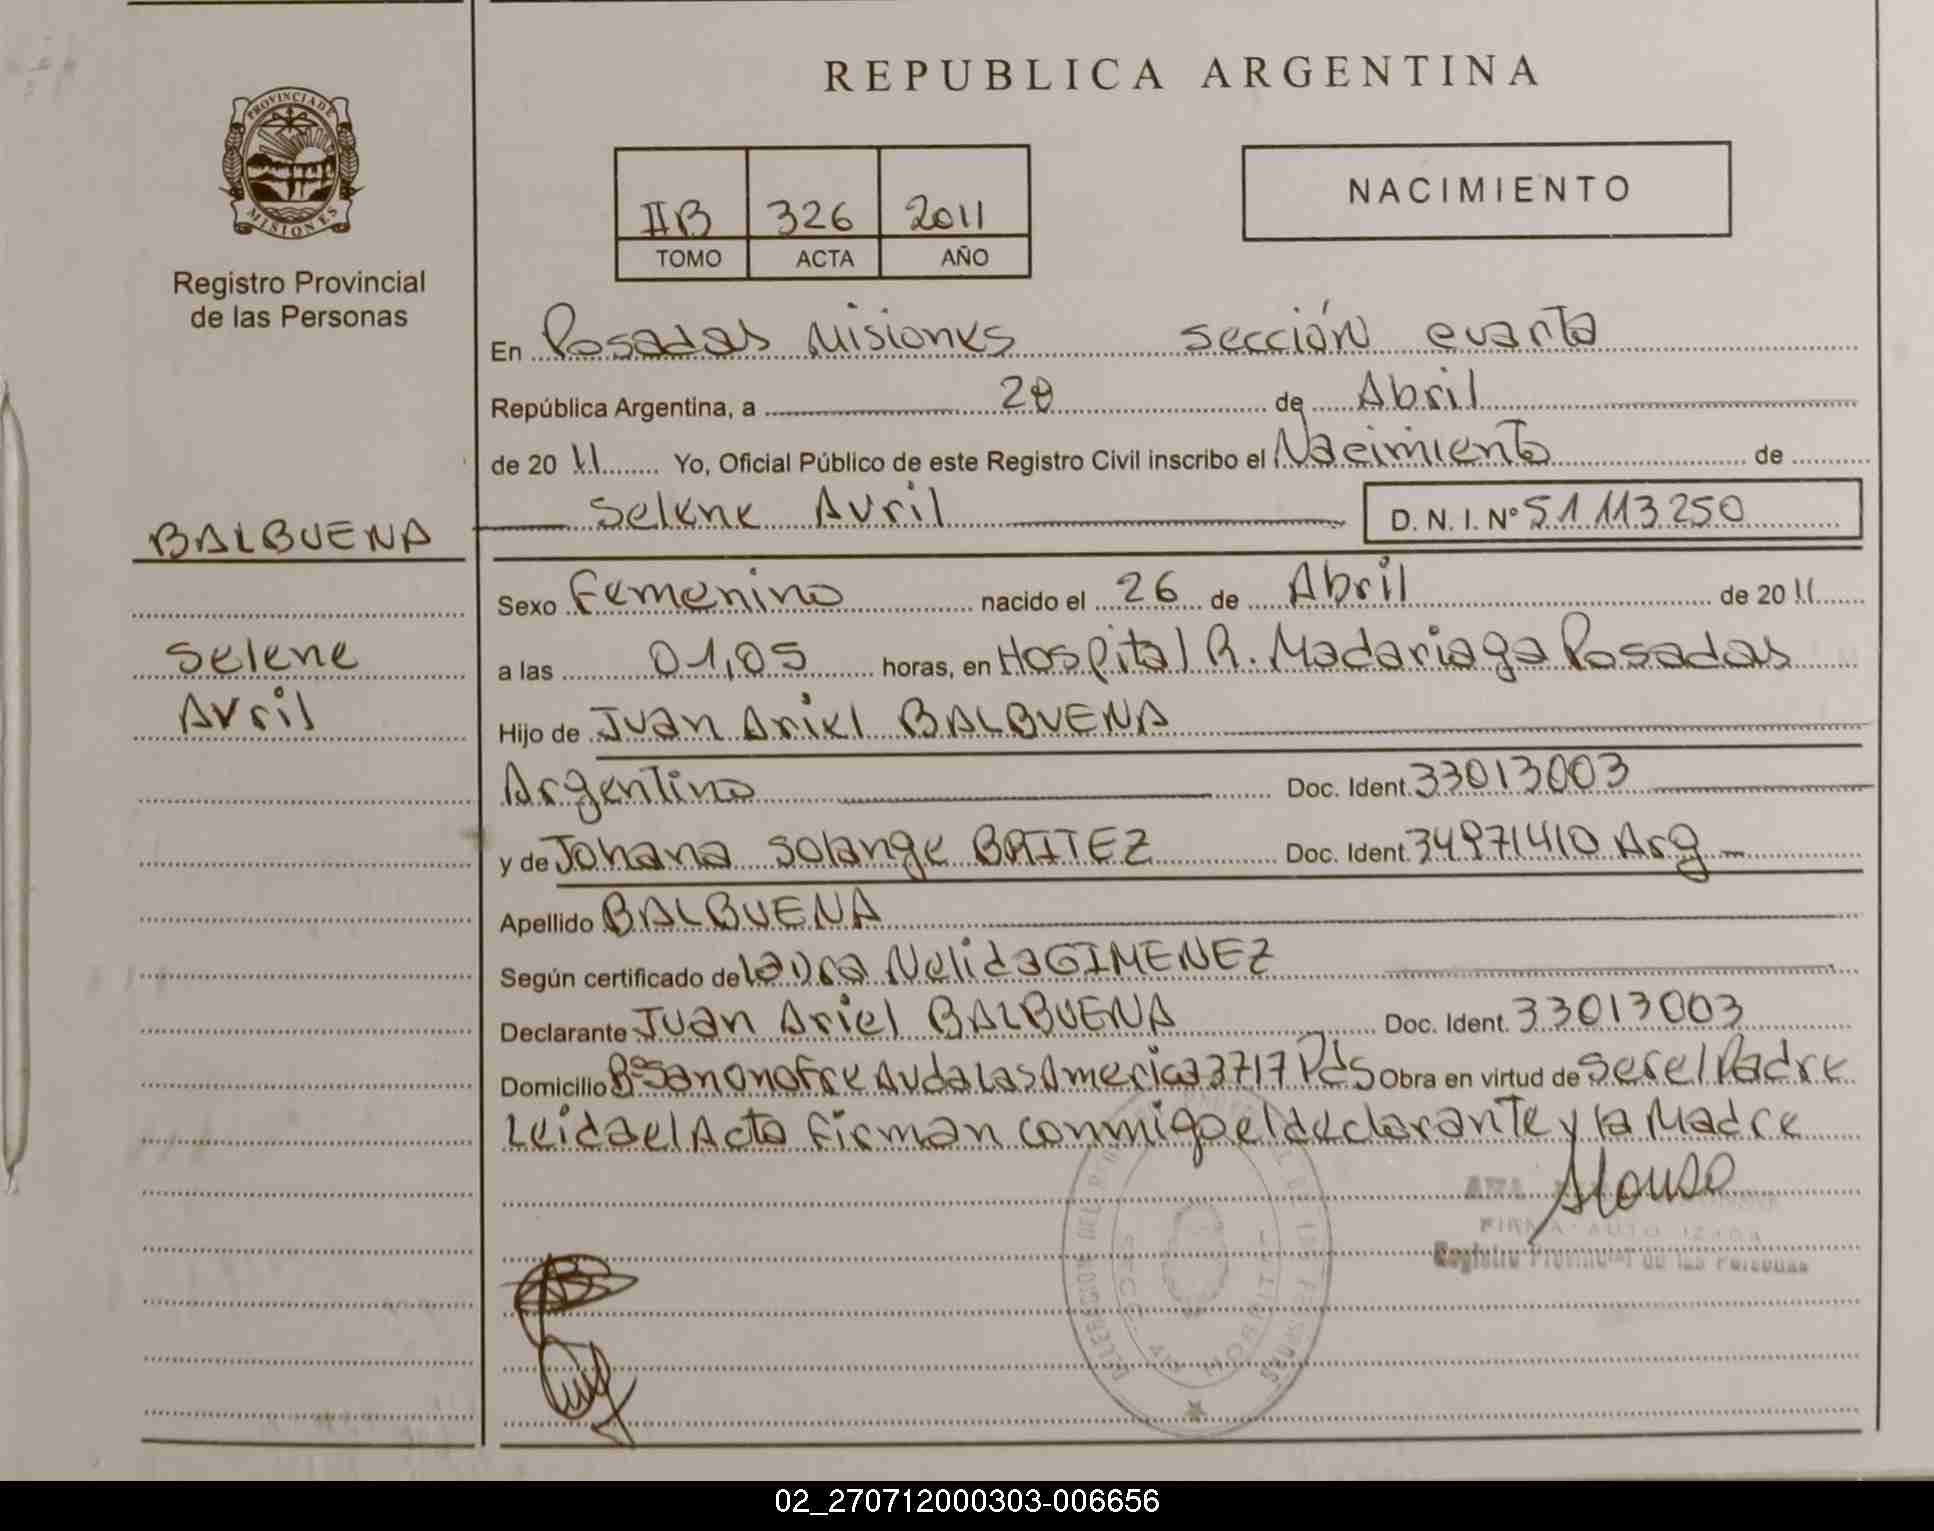 REPUBLICA ARGENTINA
PROVINCIA DE
MISIONES
Registro Provincial
de las Personas
IIB 326 2011
TOMO ACTA AÑO
NACIMIENTO
En Posadas Misiones sección cuarta
República Argentina, a 28 de Abril
de 20 11 Yo, Oficial Público de este Registro Civil inscribo el Nacimiento de
Selene Avril D. N. I. Nº 51.113.250
BALBUENA
Selene
Avril
Sexo Femenino nacido el 26 de Abril de 20 11
a las 01,05 horas, en Hospital R. Madariaga Posadas
Hijo de Juan Ariel BALBUENA
Argentino Doc. Ident. 33013003
y de Johana Solange BRITEZ Doc. Ident. 34971410 Arg
Apellido BALBUENA
Según certificado de Laura Nelida GIMENEZ
Declarante Juan Ariel BALBUENA Doc. Ident. 33013003
Domicilio Bº San Onofre Avda Las America 3717 Pds Obra en virtud de ser el Padre
Leida el Acta Firman conmigo el declarante y la Madre
Alonso
Registro Provincial de las Personas
02_270712000303-006656